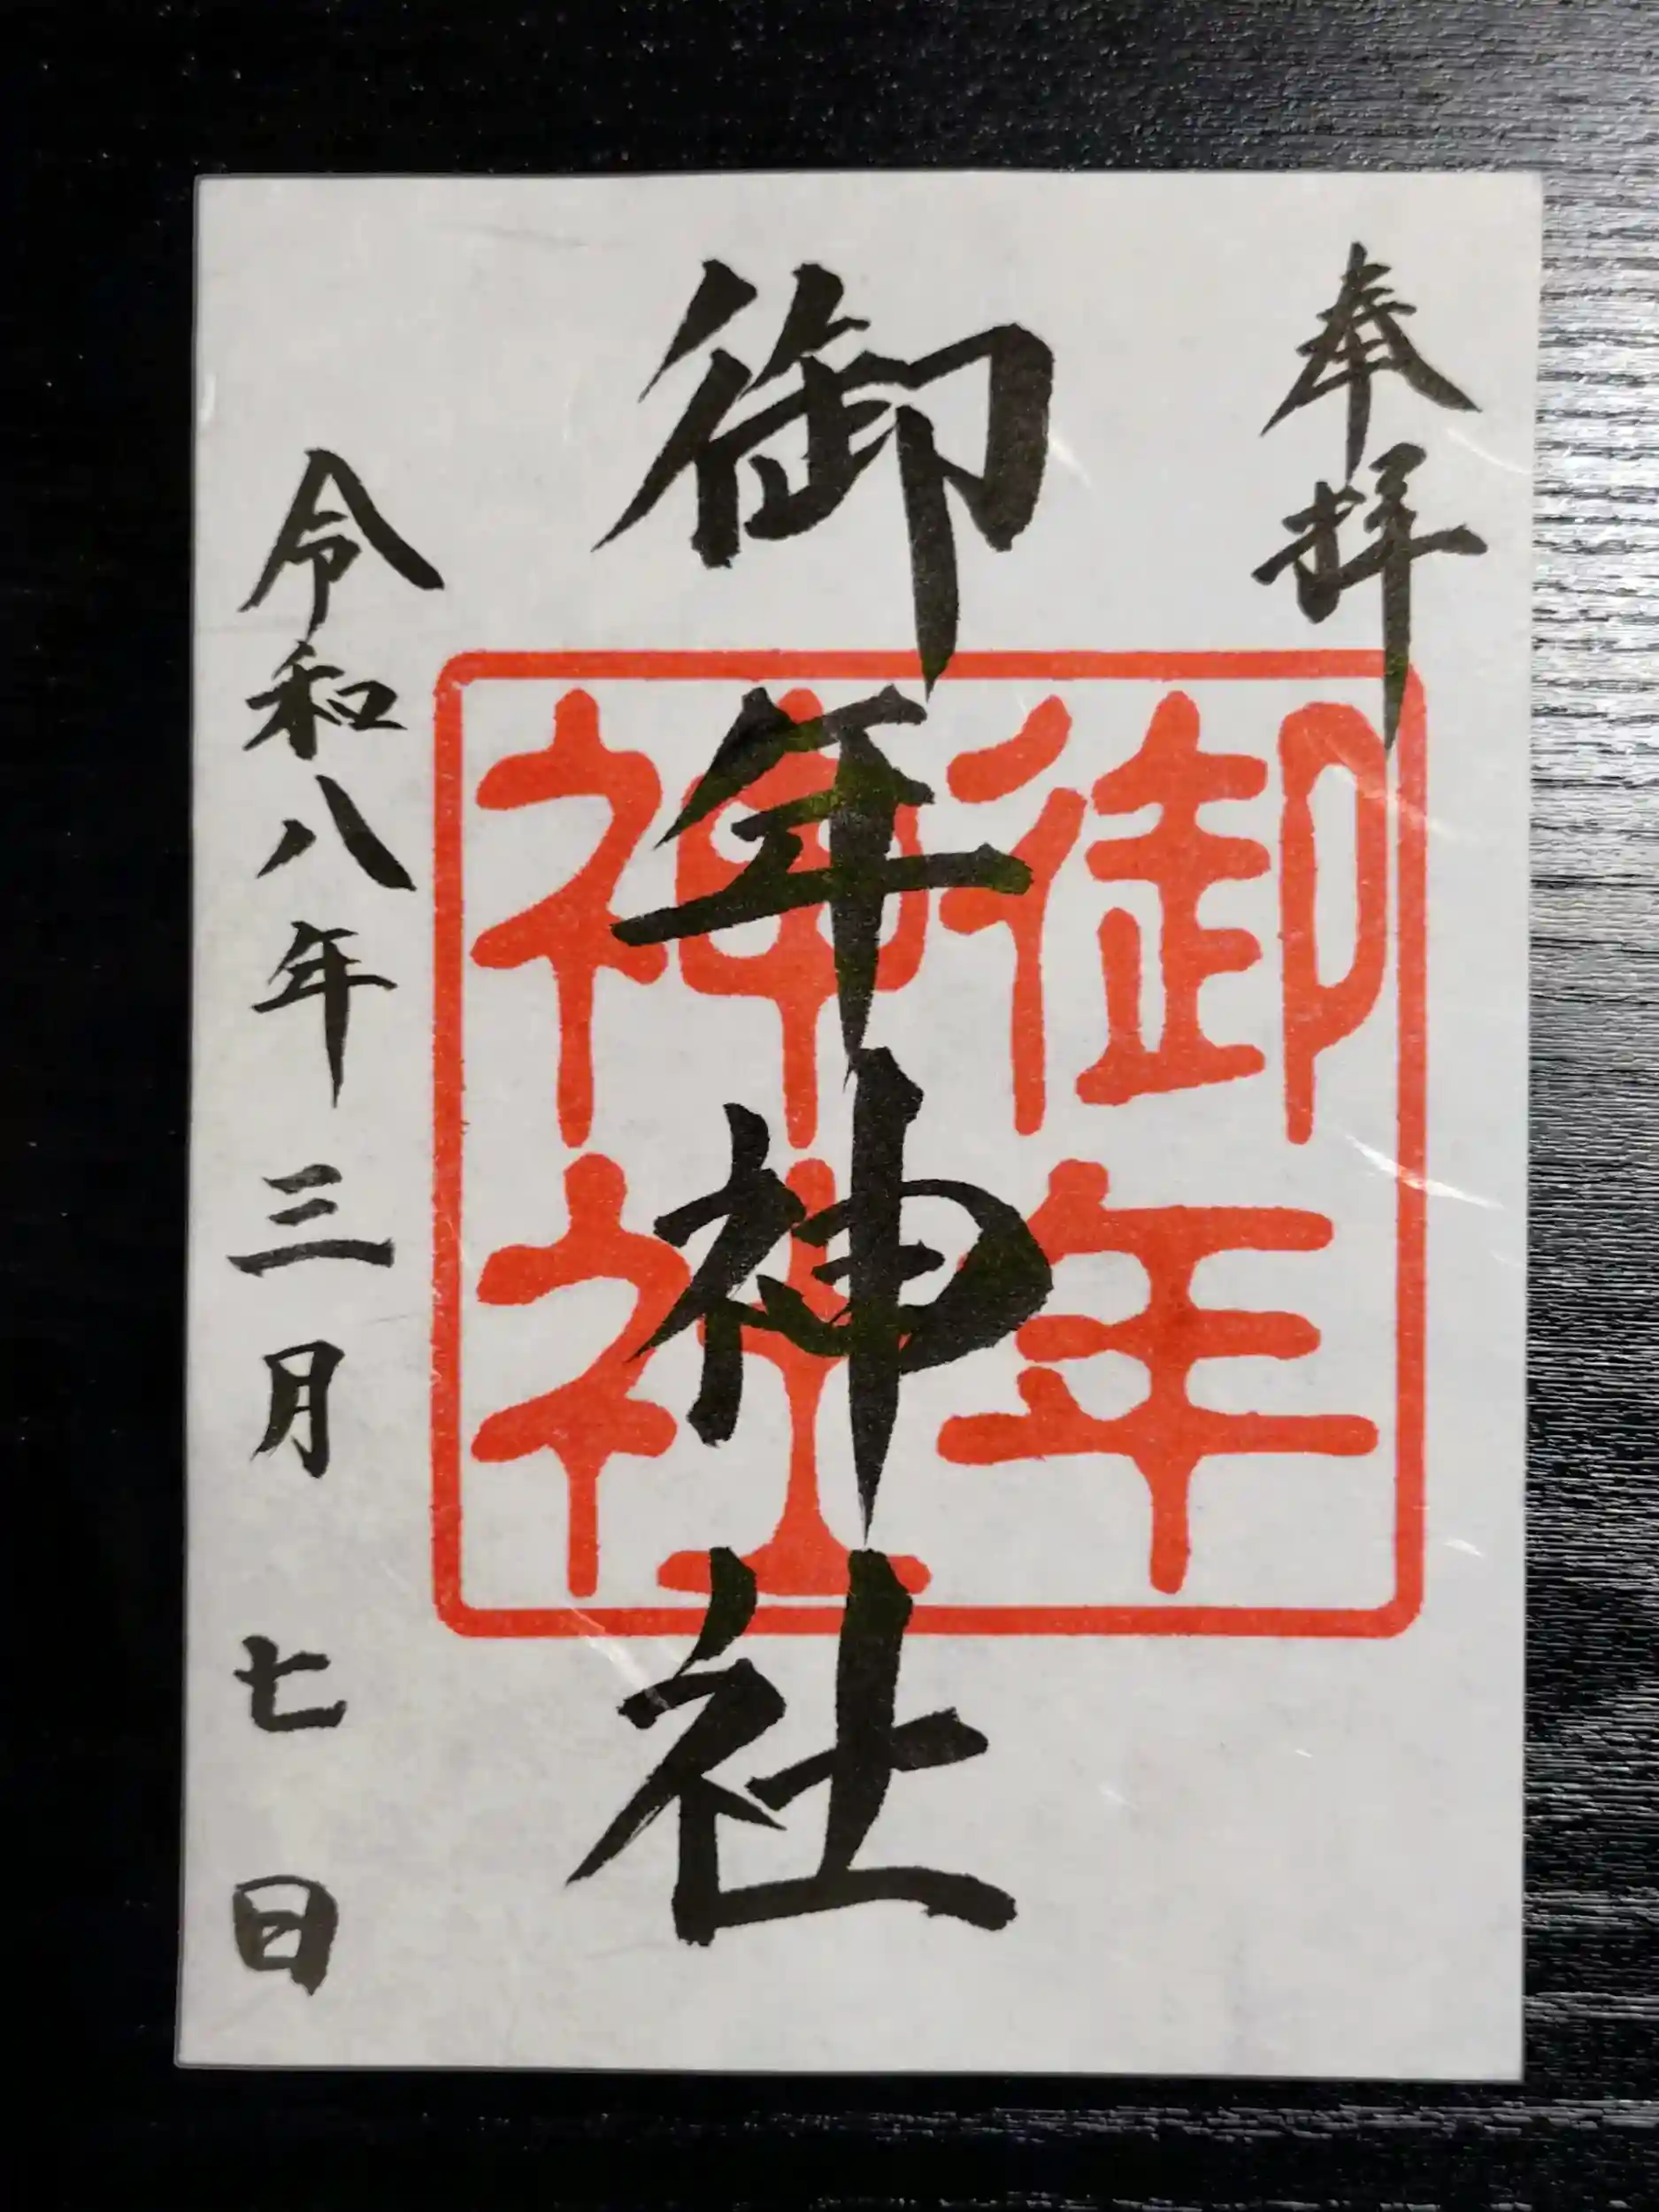 奉拝
御年神社
御年神社
令和八年三月七日